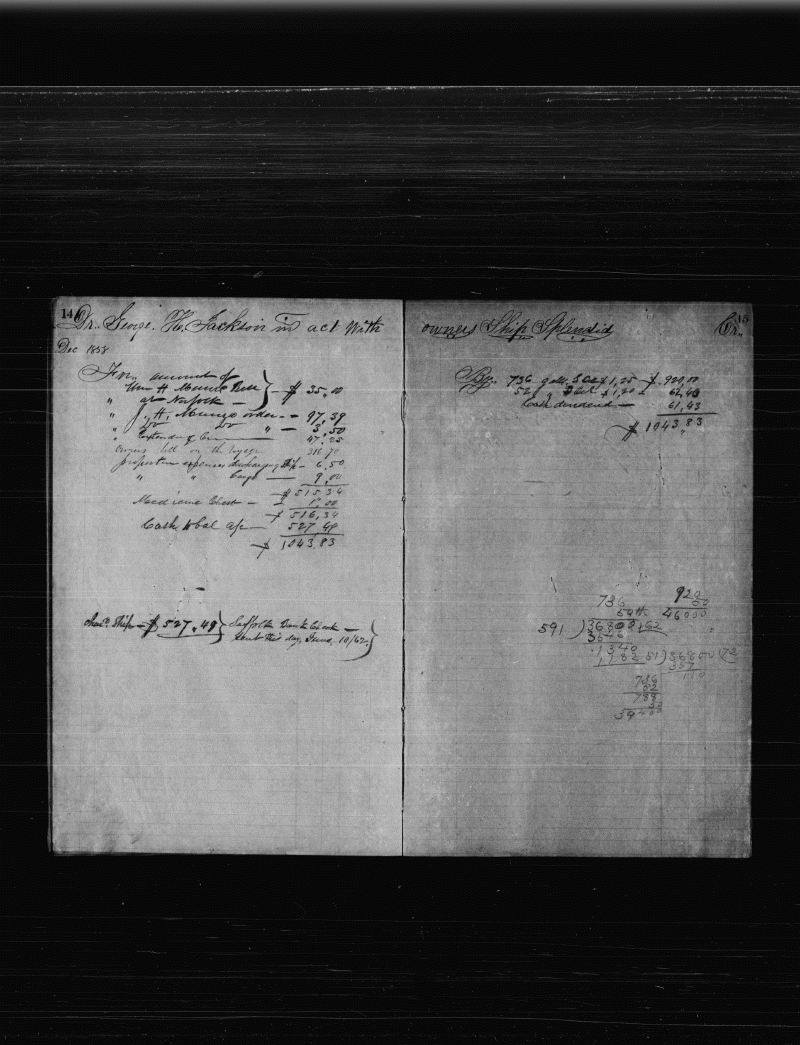 14
Dr. George. H. Jackson in act With
Dec 1858
For amount of
Wm H Bill } - $ 35,00
" at Norfolk -
" H, order - - 97,39
" Do Do " - 3,50
" 47,25
Owners bill on the Voyage 316,70
proportion expenses discharging Ship - 6,50
" " Cargo - 9,00
$ 515,34
Medicine Chest - 1,00
$ 516,34
Cash to bal a/c - 527,49
$ 1043,83
Ship - $ 527,49 } Suffolk Bank Check -
sent this day, June, 10/62. }
owners Ship Splendid
Cr. 15
By. 736 galls S Oil $ 1,25 - $ 920,00
52 " Oil $ 1,20 - 62,40
Cash dividend - 61,43
$ 1043,83
736
920
50
46000
591 ) 36800 ( 62
3546
1340
1182
51 ) 36800 ( 72
357
110
736
52
788